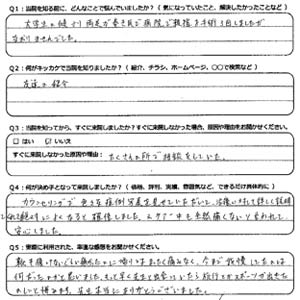 Q1：当院を知る前に、どんなことで悩んでいましたか？（気になっていたこと、解決したかったことなど）
大学生の頃から両足が巻き爪で病院で抜爪手術も1回しましたが
なおりませんでした。
Q2：何がキッカケで当院を知りましたか？（紹介、チラシ、ホームページ、○○で検索など）
友達の紹介
Q3：当院を知ってから、すぐに来院しましたか？すぐに来院しなかった場合、原因や理由をお聞かせください。
□ はい ☑ いいえ
すぐに来院しなかった原因や理由：たくさんの所で相談をしていた。
Q4：何が決め手となって来院しましたか？（価格、評判、実績、雰囲気など、できるだけ具体的に）
カウンセリングで 症例写真を見せていただいて、治療に対して詳しく説明
絶対によくなると確信しました。 全然痛くないと言われ
安心しました。
Q5：実際に利用された、率直な感想をお聞かせください。
靴も履けないくらい痛かったのに 痛みなく、今まで我慢してたのは
何だったのかと思いました。もっと早く先生と出会っていたら旅行とかスポーツが出来た
のにと悔みます。先生本当にありがとうございました。